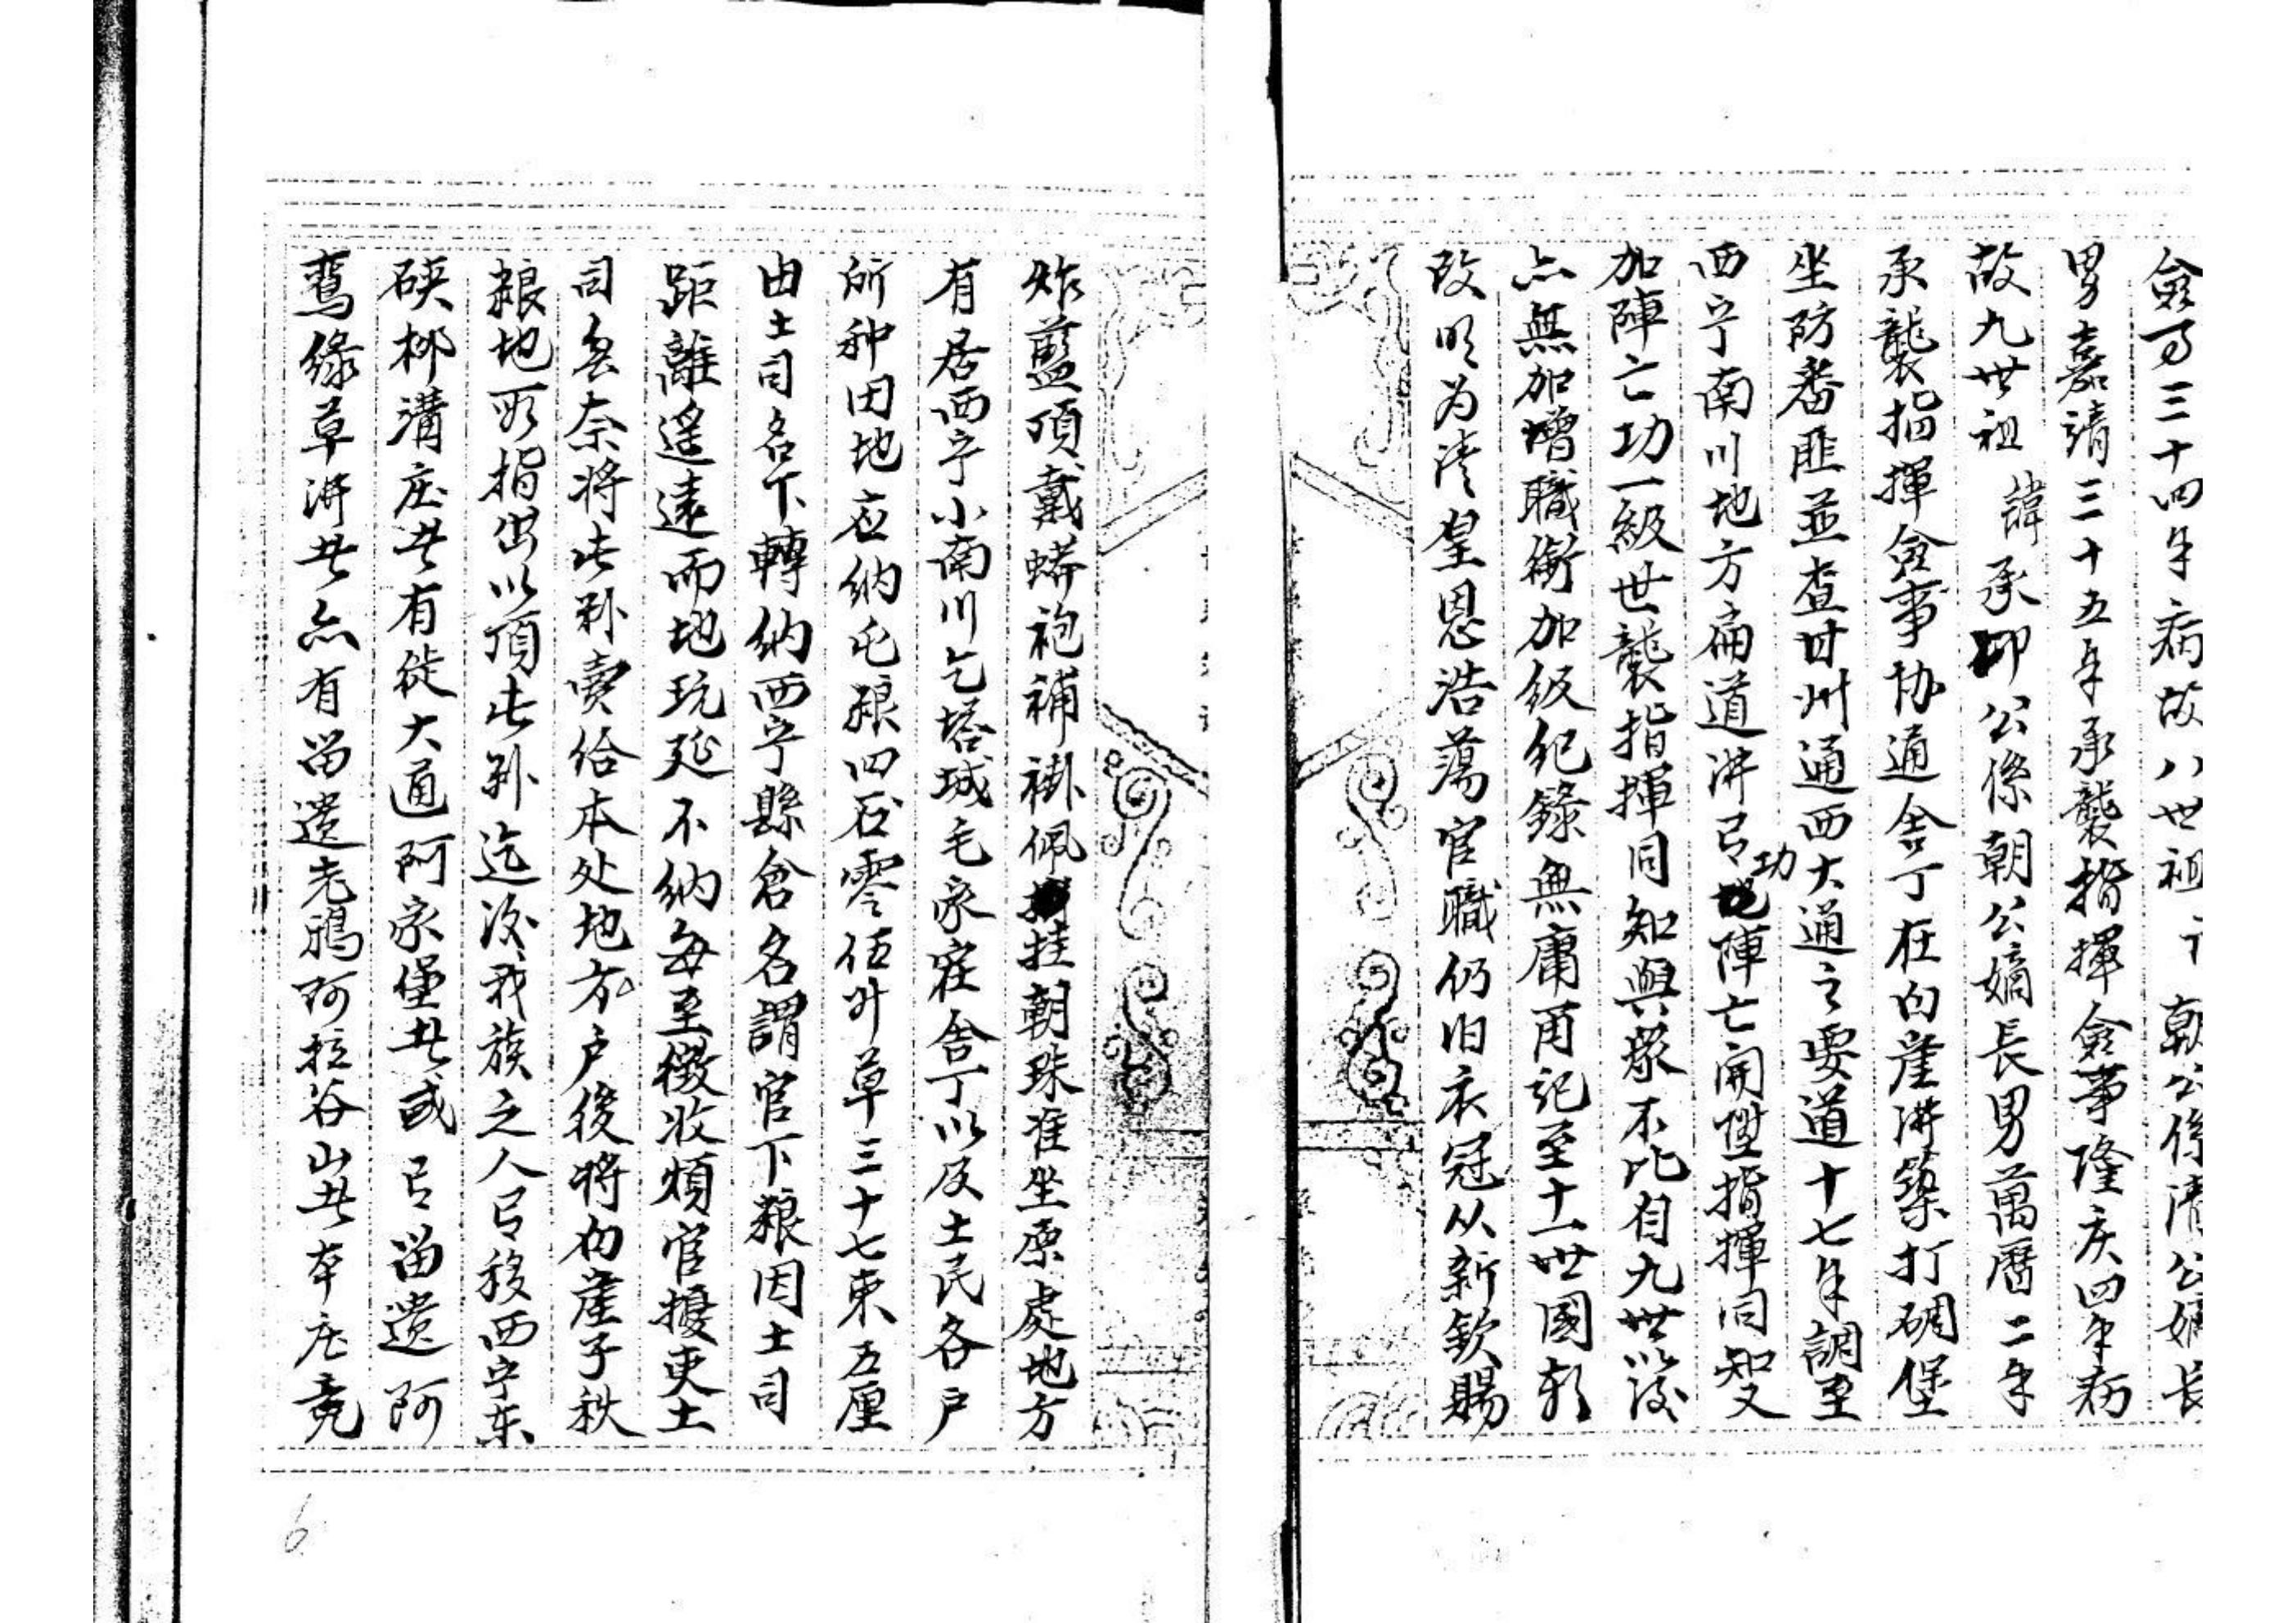 僉事三十四年病故八世祖 諱 朝公係清公嫡長
男嘉靖三十五年承襲指揮僉事隆庆四年病
故九世祖 諱承卿公係朝公嫡長男萬曆二年
承襲指揮僉事协通舍丁在向崖湃築打碉堡
坐防番匪並查甘州通西大通之要道十七年調至
西宁南川地方扁道湃㠯功陣亡開陞指揮同知又
加陣亡功一級世襲指揮同知與眾不比自九世以後
亦無加增職銜加级纪錄無庸再記至十一世國朝
改明为清皇恩浩蕩官職仍旧衣冠从新欽賜
炸藍頂戴蟒袍補褂佩挂朝珠准坐原處地方
有居西宁小南川乞塔城毛家寨舍丁以及土民各户
所种田地应纳屯粮四石零伍升草三十七束五厘
由土司名下轉纳西宁縣倉名謂官下粮因土司
距離遥遠而地玩延不纳每至徵收煩官擾吏土
司無奈将此卦賣给本处地方户後将向崖子秩
粮地瓦指出以頂此卦迄後我族之人㠯移西宁东
硖柳溝庄其有徙大通阿家堡其或㠯留遗阿
鸾緣草湃其亦有留遗老鴉阿拉谷山其本庄竟
6